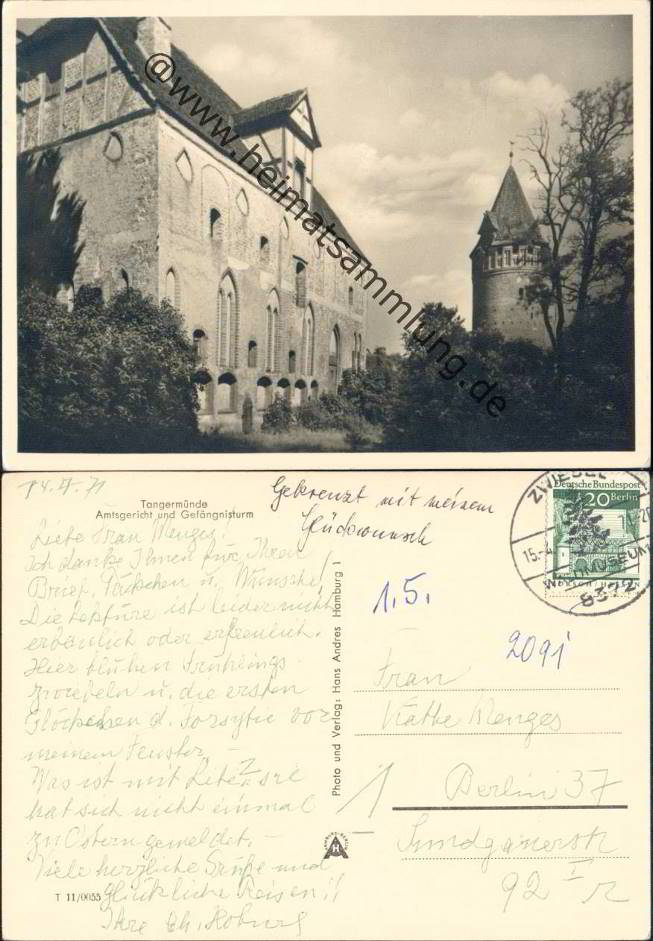 @www.heimatsammlung.de
14.4.71
Tangermünde
Amtsgericht und Gefängnisturm
Liebe Frau Menges,
Ich danke Ihnen für Ihren
Brief, Päckchen u. Wünsche!
Die Lektüre ist leider nicht
erbaulich oder erfreulich.
Hier blühen Frühlings-
zwiebeln u. die ersten
Glöckchen d. Forsytie vor
meinem Fenster. –
Was ist mit
hat sich nicht einmal
zu Ostern gemeldet. –
Viele herzliche Grüße und
glückliche Reisen!!
Ihre
T 11/0055
Photo und Verlag: Hans Andres Hamburg 1
Gekreuzt mit meinem
Glückwunsch
1.5.
2091
Deutsche Bundespost
20 Berlin
ZWIESEL
15.-4.
WALDMUSEUM
8372
Frau
Käthe Menges
1 Berlin 37
Sundgauerstr
92 I r